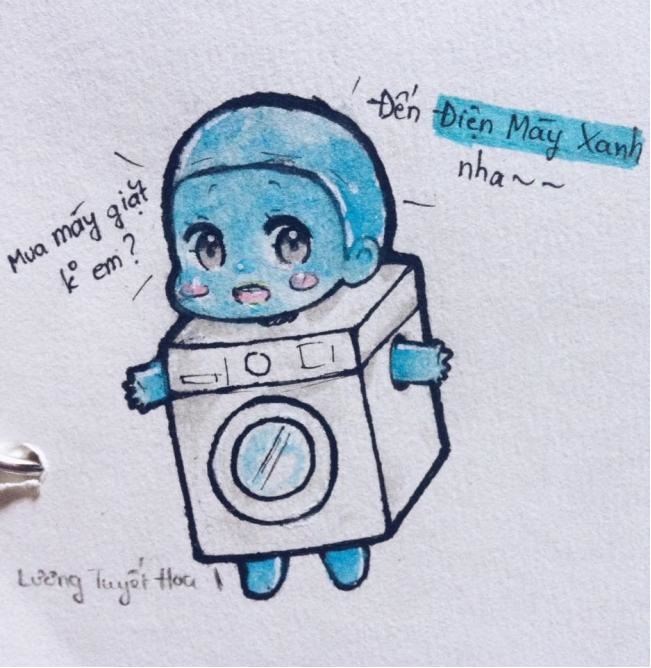 Mua máy giặt
k° em?
Đến Điện Máy Xanh
nha~~
Lương Tuyết Hoa